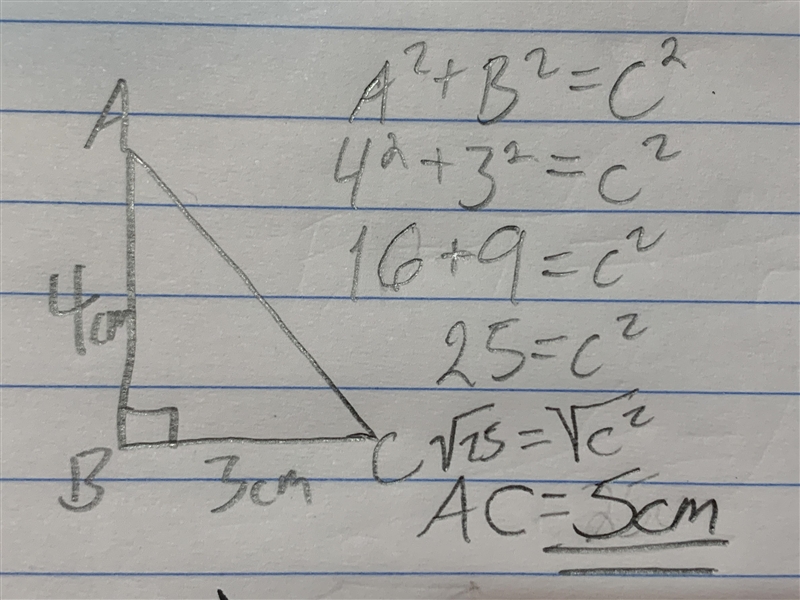 A
4cm
B
3cm
C
A²+B²=C²
4²+3²=c²
16+9=c²
25=c²
√25=√c²
AC=5cm